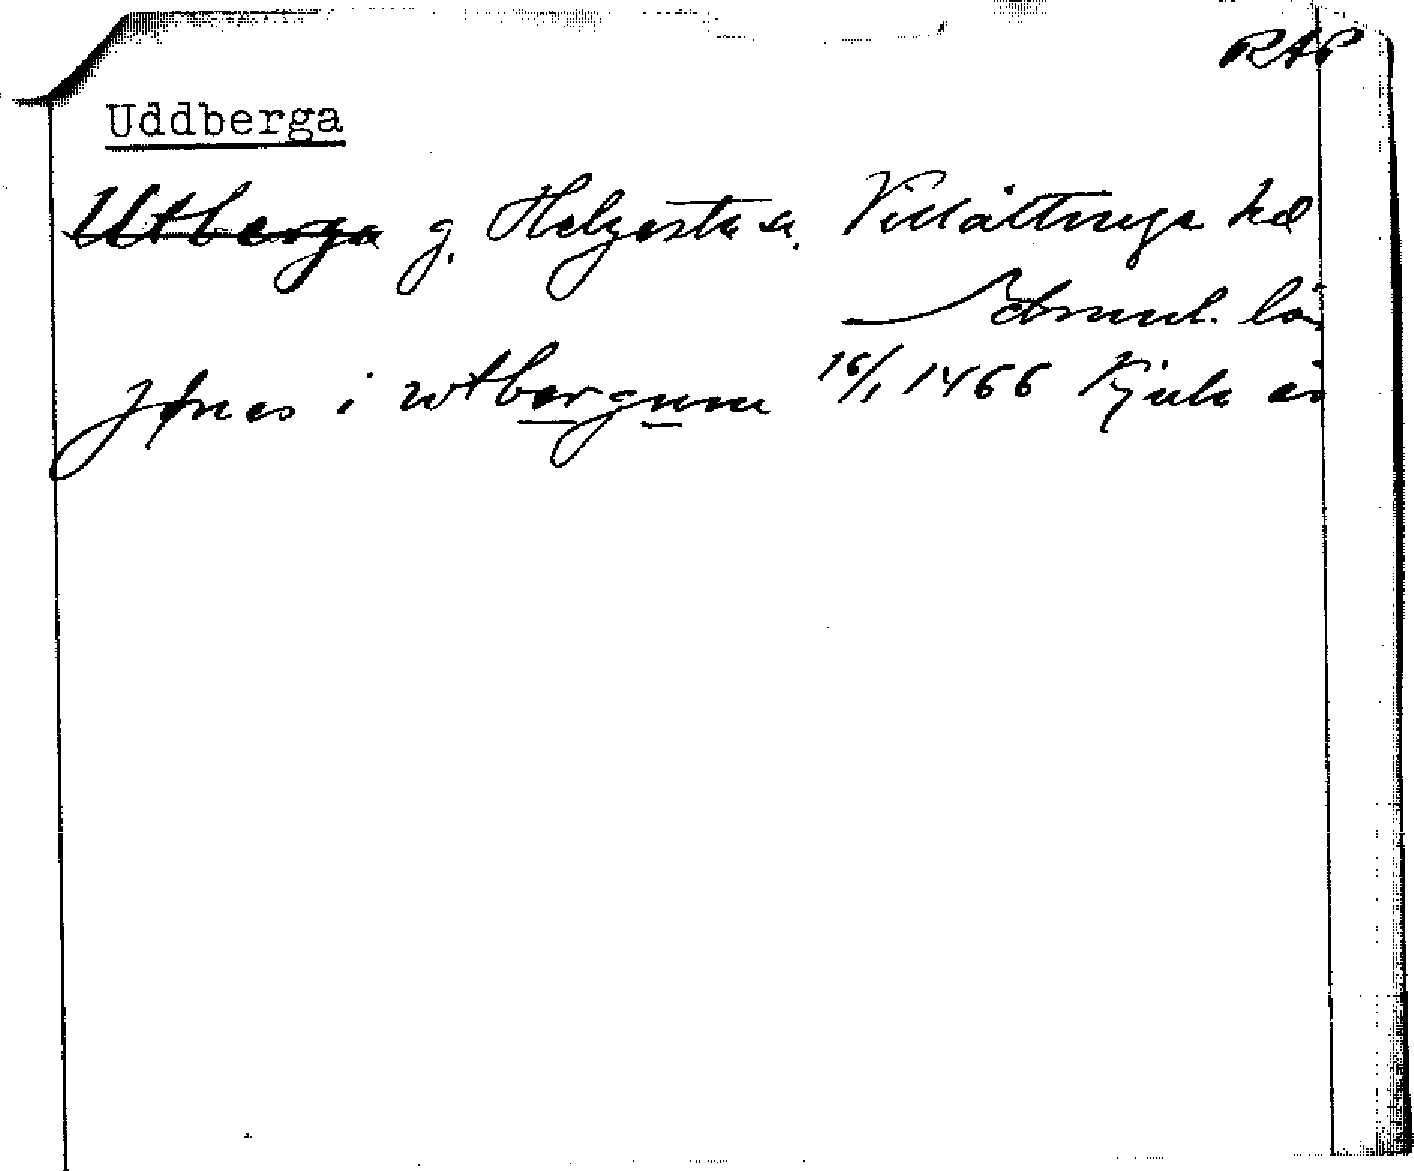 RAP
Uddberga
Utberga g. Helgesta sn. Villåttinga hd
Södermanl. län
Jønes i wtbergum 16/1 1466 Kjula